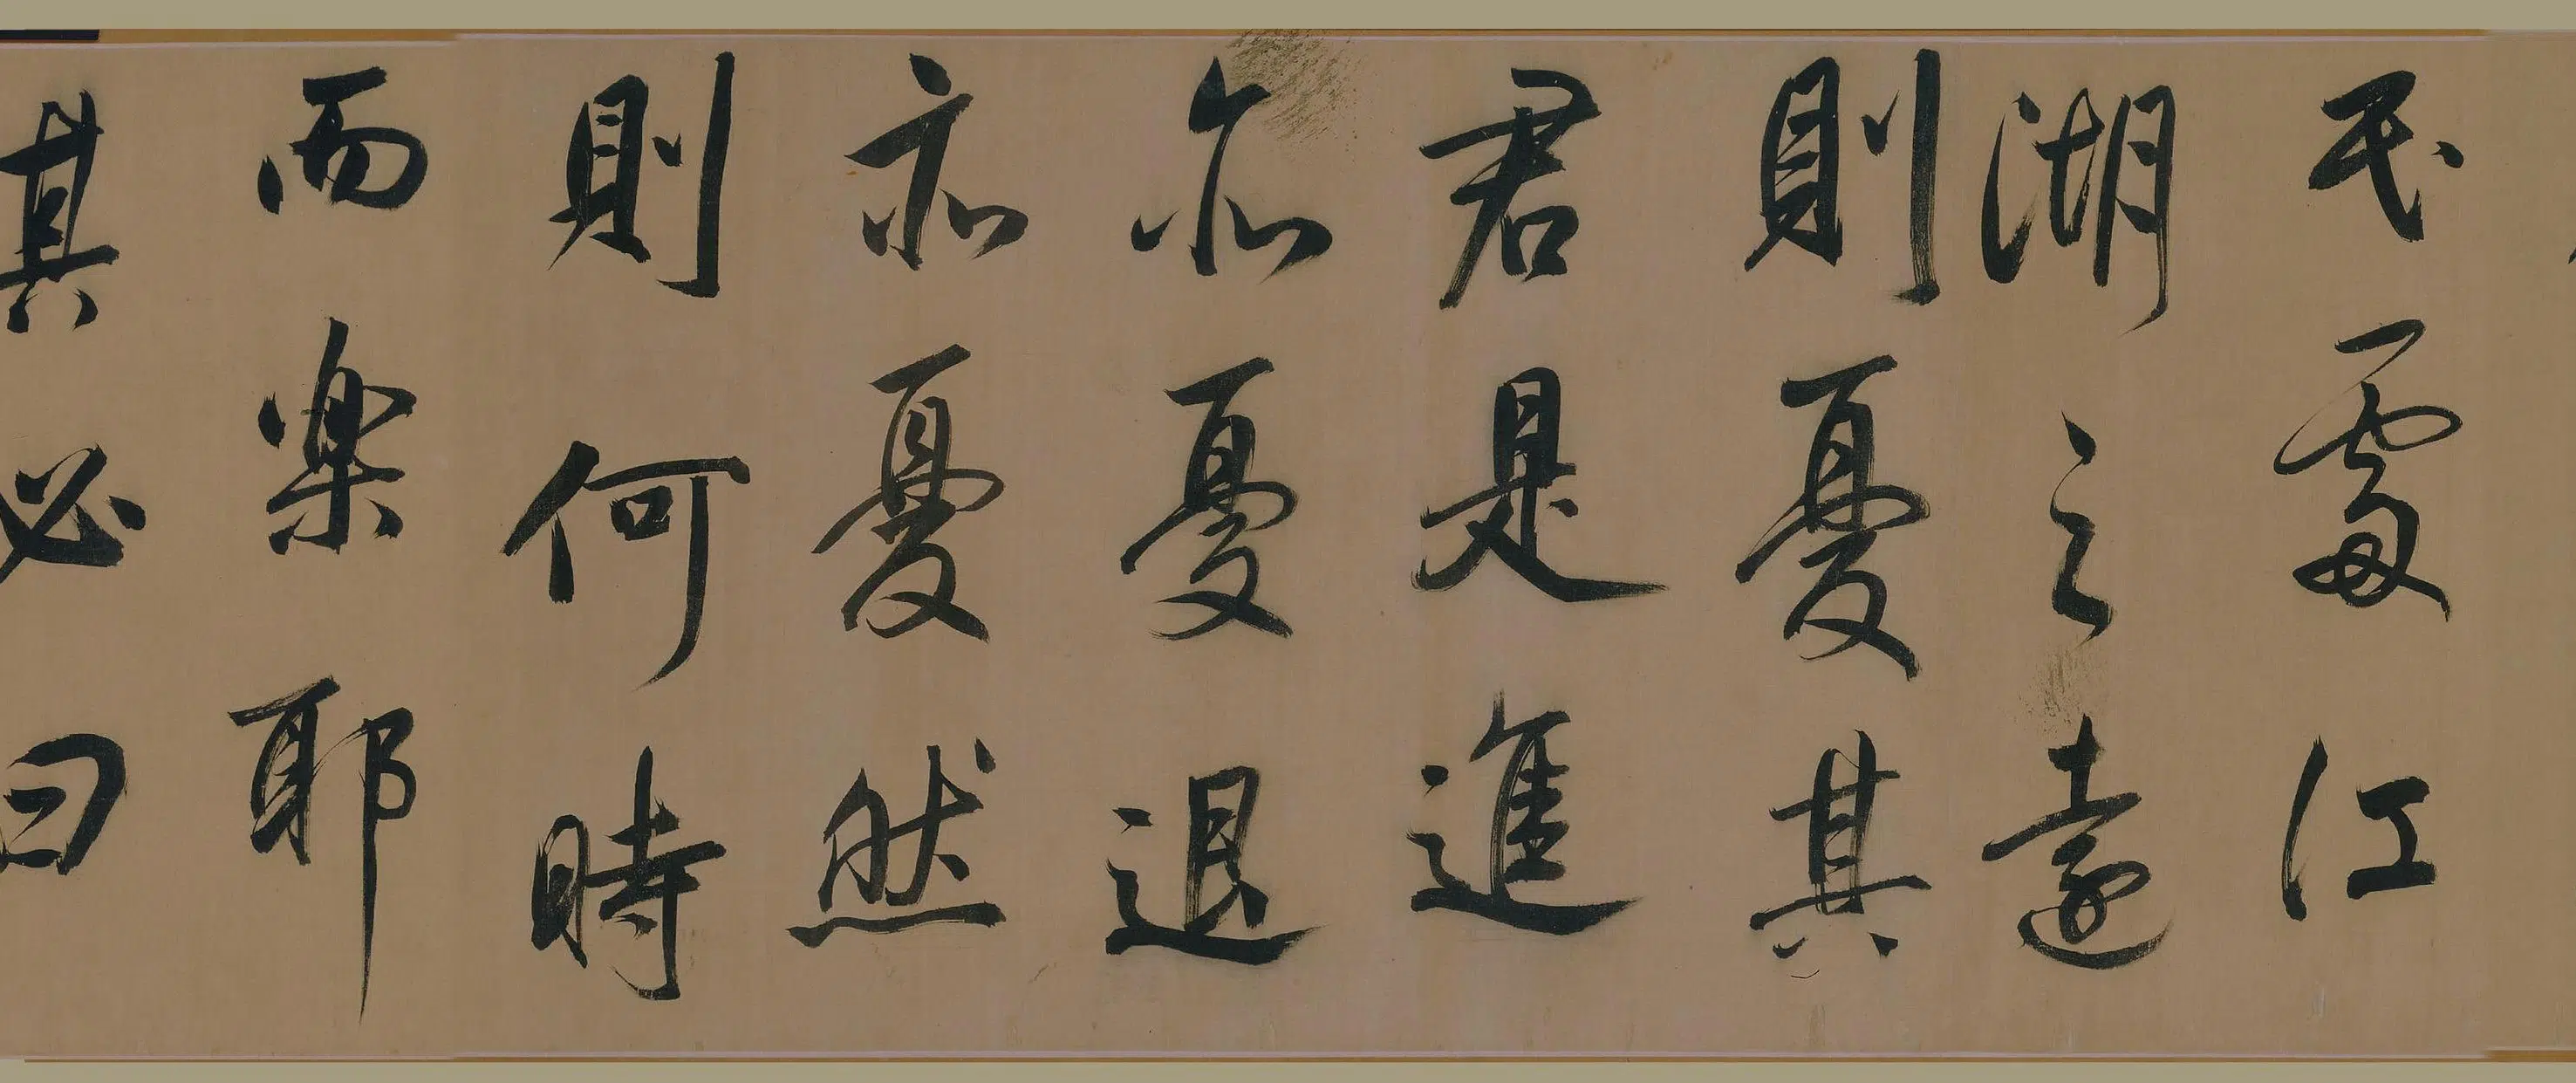 民處江
湖之遠
則憂其
君是進
亦憂退
亦憂然
則何時
而樂耶
其必曰